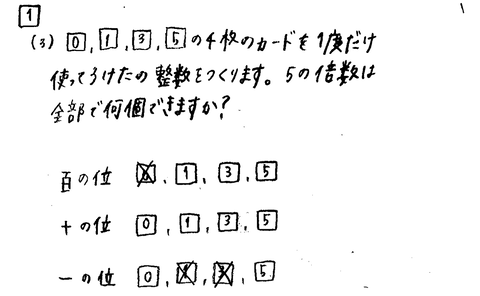 1
(3) 0, 1, 3, 5 の4枚のカードを1度だけ
使って3けたの整数をつくります。5の倍数は
全部で何個できますか?
百の位 0, 1, 3, 5
十の位 0, 1, 3, 5
一の位 0, 1, 3, 5